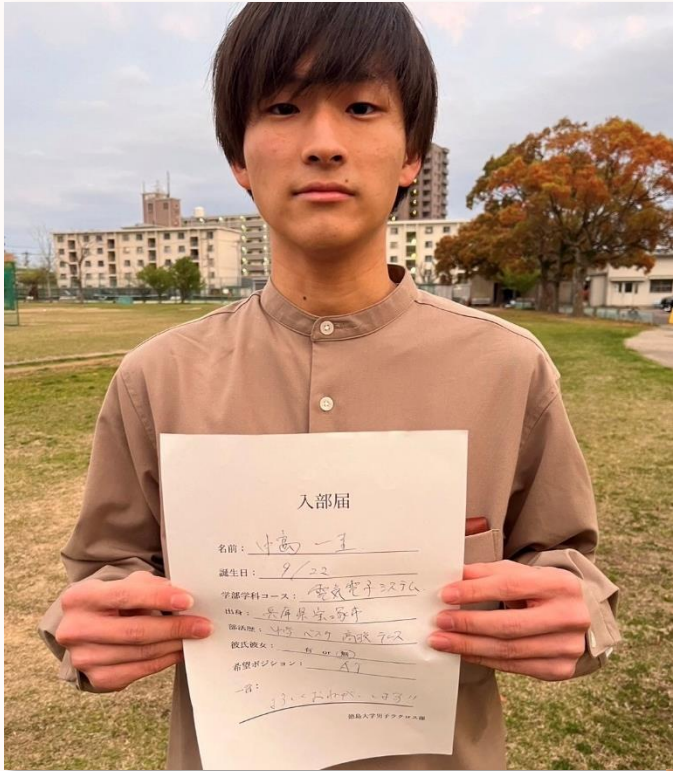 入部届
名前： 一
誕生日： 9/22
学部学科コース： 電気電子システム
出身： 兵庫県宝塚市
部活歴： バスケ 高校 テニス
彼氏彼女： 有 or 無
希望ポジション： AT
一言：
よろしくおねがいします!!
徳島大学男子ラクロス部